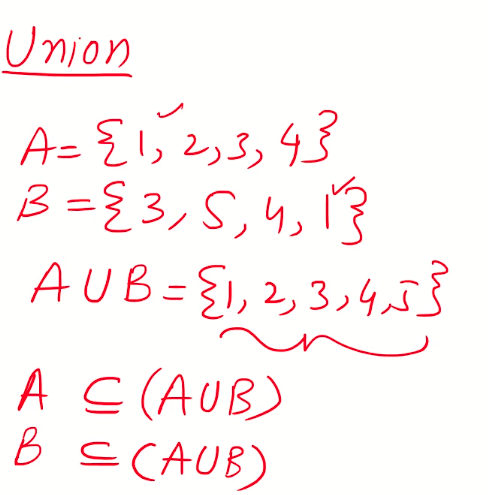 Union
A = {1, 2, 3, 4}
B = {3, 5, 4, 1}
A ∪ B = {1, 2, 3, 4, 5}
A ⊆ (A∪B)
B ⊆ (A∪B)